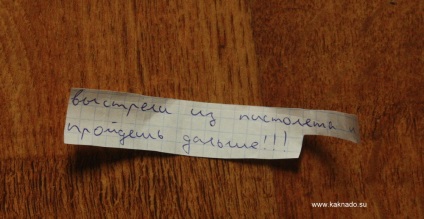 выстрели из пистолета и
пройдешь дальше!!!
www.kaknado.su